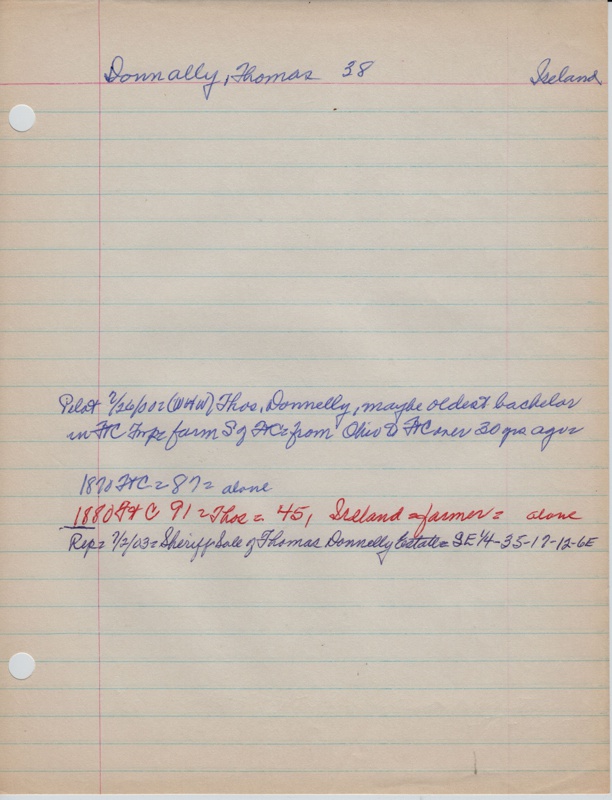 Donnally, Thomas 38 Ireland
Pilot 7/26/00= (WAW) Thos. Donnelly, maybe oldest bachelor
in FtC Twp= farm S of FtC= from Ohio to FtC over 30 yrs ago=
1870 FtC= 87= alone
1880 FtC 91= Thos= 45, Ireland= farmer= alone
Rep= 7/2/03= Sheriff Sale of Thomas Donnelly Estate= SE 1/4-35-17-12-6E